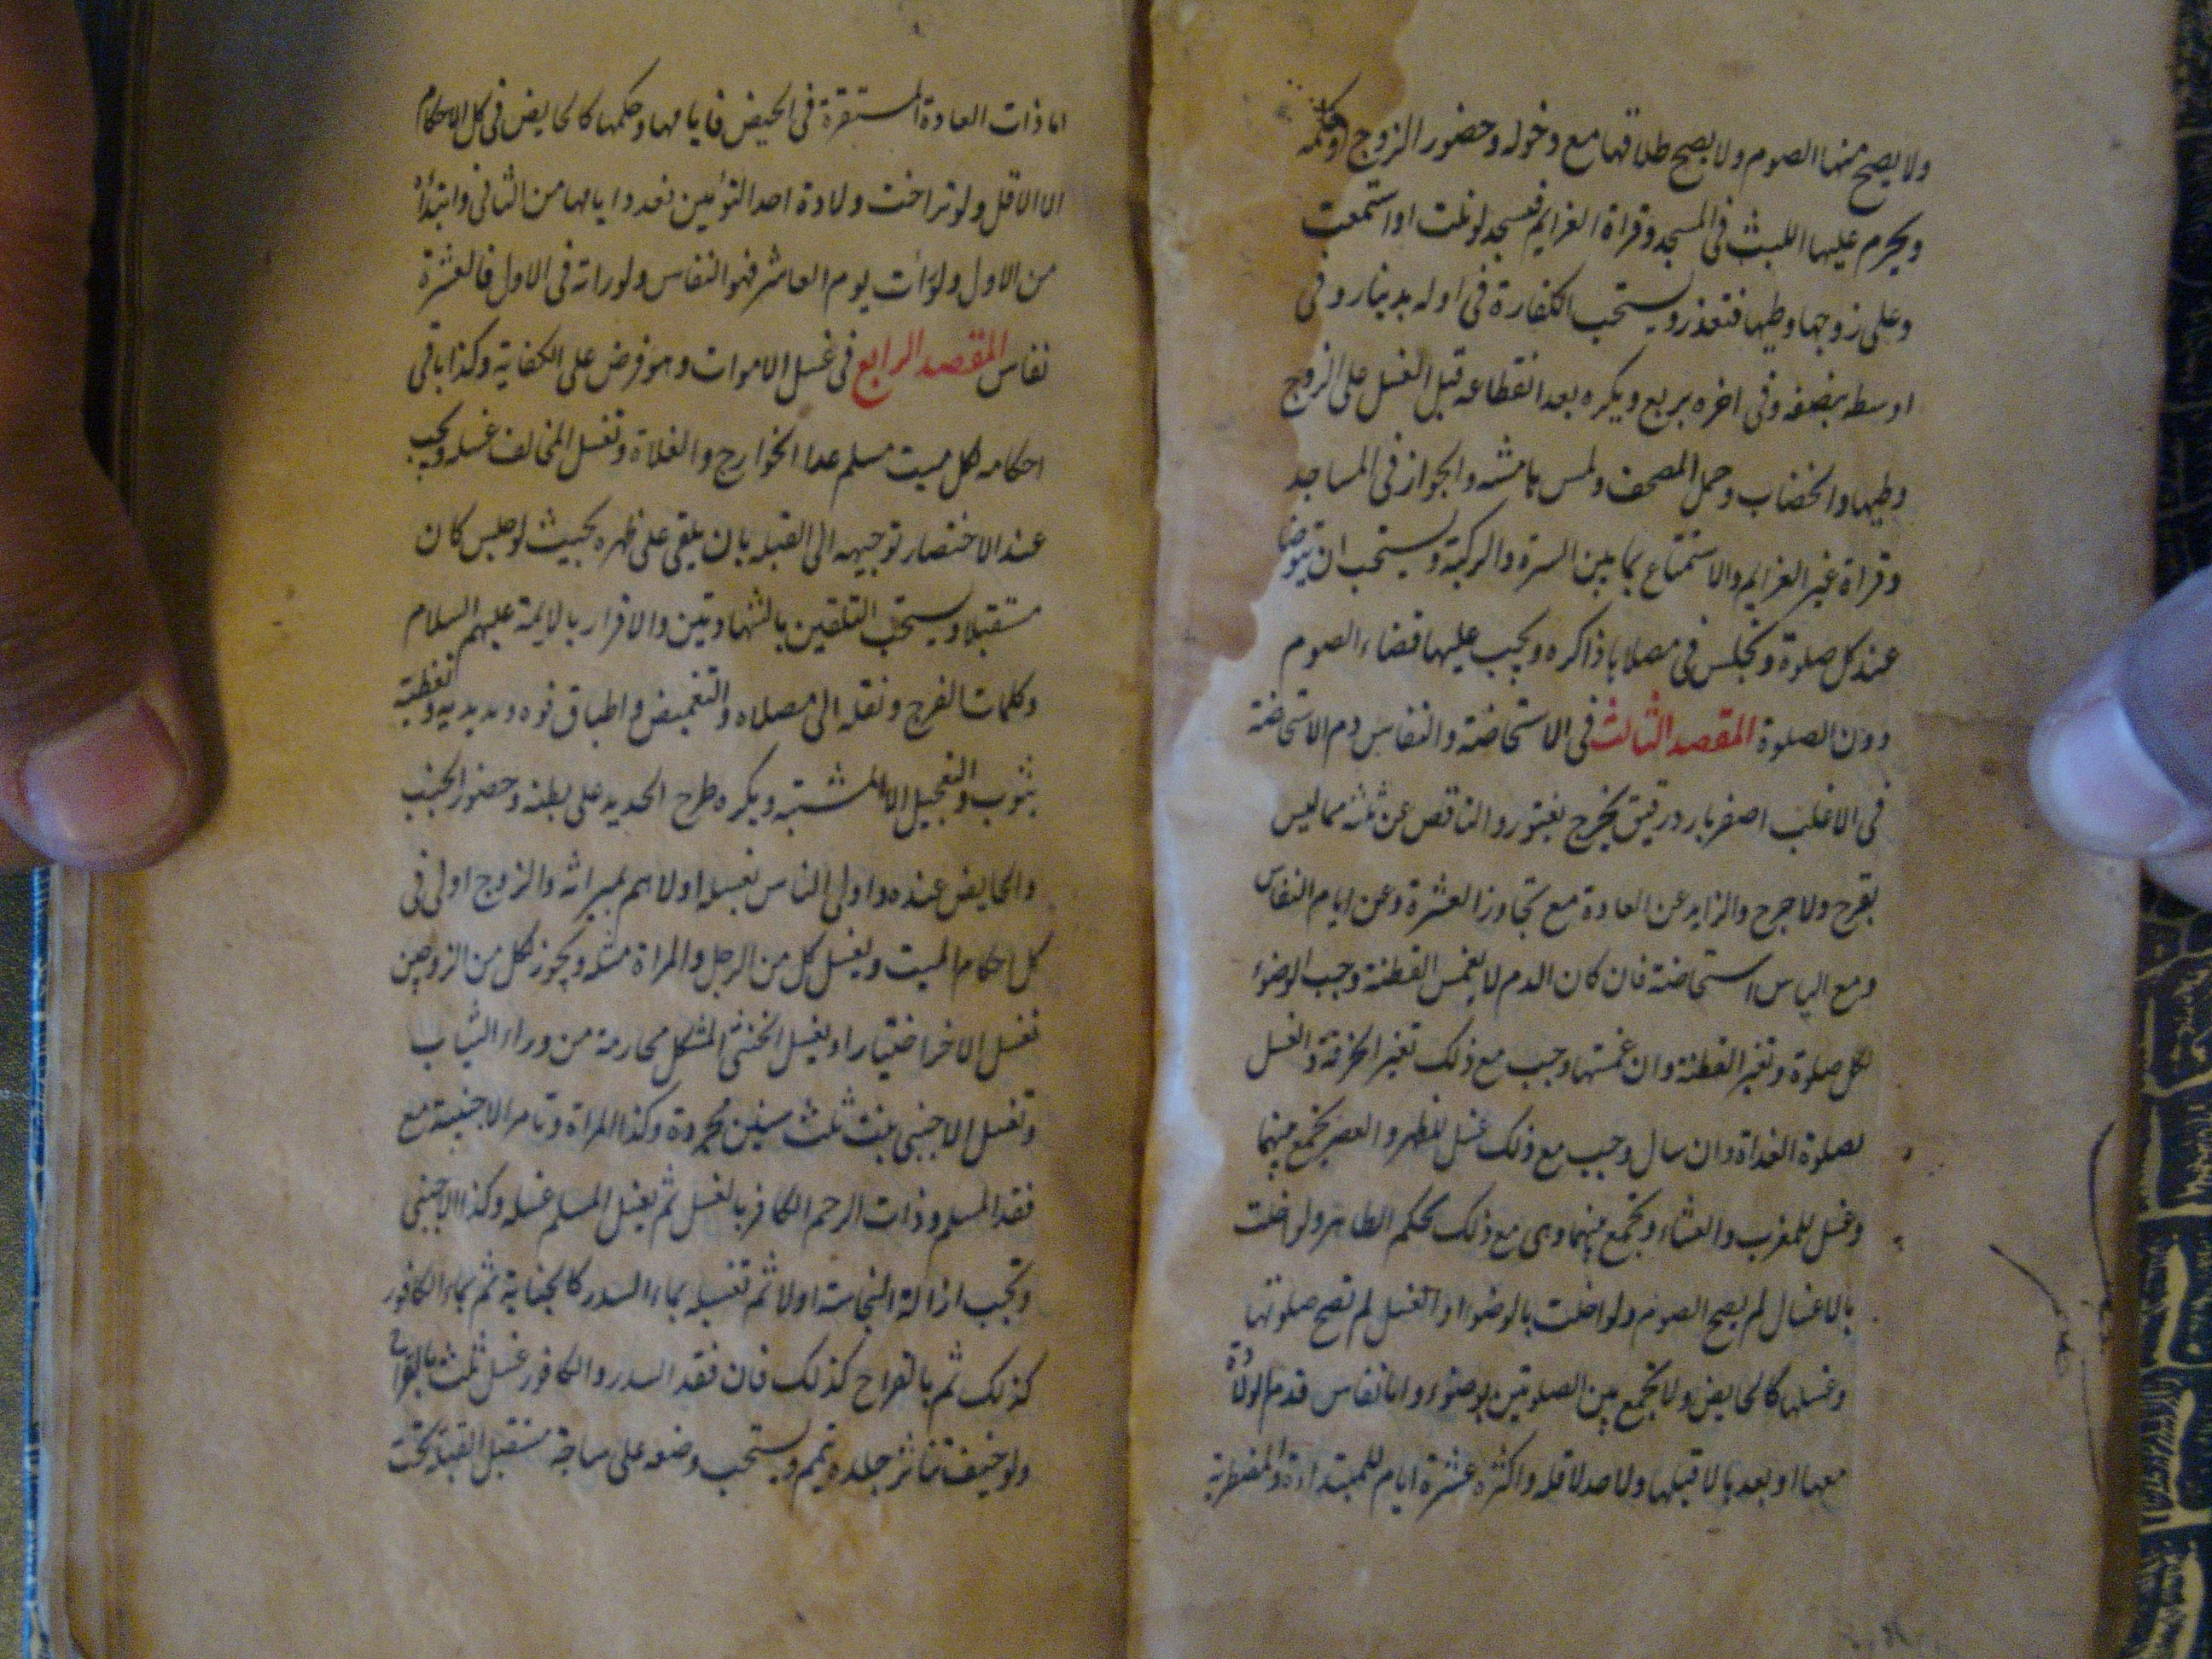 ولا يصح منها الصوم ولا يصح طلاقها مع دخوله وحضور الزوج او حكمه
ويحرم عليها اللبث في المسجد وقراة العزايم فتسجد لو تلت او استمعت
وعلى زوجها وطيها فتعذر ويستحب الكفارة في اوله بدينار وفي
اوسطه بنصفه وفي اخره بربع ويكره بعد انقطاعه قبل الغسل على الزوج
وطيها والخضاب وحمل المصحف ولمس هامشه والجواز في المساجد
وقراة غير العزايم والاستمتاع بما بين السرة والركبة ويستحب ان تتوضا
عند كل صلوة وتجلس في مصلاها ذاكره ويجب عليها قضاء الصوم
دون الصلوة المقصد الثالث في الاستحاضة والنفاس دم الاستحاضة
في الاغلب اصفر بارد رقيق يخرج بفتور والناقص عن ثلثة مما ليس
بقرح ولا جرح والزايد عن العادة مع تجاوز العشرة وعن ايام النفاس
ومع الياس استحاضة فان كان الدم لا يغمس القطنة وجب الوضوء
لكل صلوة وتغير القطنة وان غمستها وجب مع ذلك تغير الخرقة والغسل
لصلوة الغداة وان سال وجب مع ذلك غسل للظهر والعصر تجمع بينهما
وغسل للمغرب والعشاء وتجمع بينهما وهي مع ذلك بحكم الطاهر ولو اخلت
بالاغسال لم يصح الصوم ولو اخلت بالوضوء او الغسل لم تصح صلوتها
وغسلها كالحايض ولا تجمع بين الصلوتين بوضوء واما النفاس فدم الولادة
معها او بعدها لا قبلها ولا حد لاقله واكثره عشرة ايام للمبتداءة والمضطربة
اما ذات العادة المستقرة في الحيض فايامها وحكمها كالحايض في كل الاحكام
الا الاقل ولو تراخت ولادة احد التوئمين فعدد ايامها من الثاني وابتداؤه
من الاول ولو رأت يوم العاشر فهو النفاس ولو راته في الاول فالعشرة
نفاس المقصد الرابع في غسل الاموات وهو فرض على الكفاية وكذا باقي
احكامه لكل ميت مسلم عدا الخوارج والغلاة وتغسل المخالف غسله ويجب
عند الاحتضار توجيهه الى القبلة بان يلقى على ظهره بحيث لو جلس كان
مستقبلا ويستحب التلقين بالشهادتين والاقرار بالايمة عليهم السلام
وكلمات الفرج ونقله الى مصلاه والتغميض واطباق فوه ومد يديه وتغطيته
بثوب والتعجيل الا المشتبه ويكره طرح الحديد على بطنه وحضور الجنب
والحايض عنده واولى الناس بغسله اولاهم بميراثه والزوج اولى في
كل احكام الميت ويغسل كل من الرجل والمراة مثله ويجوز لكل من الزوجين
تغسل الاخر اختيارا ويغسل الخنثى المشكل محارمه من وراء الثياب
وتغسل الاجنبي بنت ثلث سنين مجردة وكذا المراة وتامر الاجنبية مع
فقد المسلم وذات الرحم الكافر بالغسل ثم يغسل المسلم غسله وكذا الاجنبي
وتجب ازالة النجاسة اولا ثم تغسله بماء السدر كالجنابة ثم بماء الكافور
كذلك ثم بالقراح كذلك فان فقد السدر والكافور غسل ثلث بالقراح
ولو خيف تناثر جلده تيمم ويستحب وضعه على ساجة مستقبل القبلة تحت